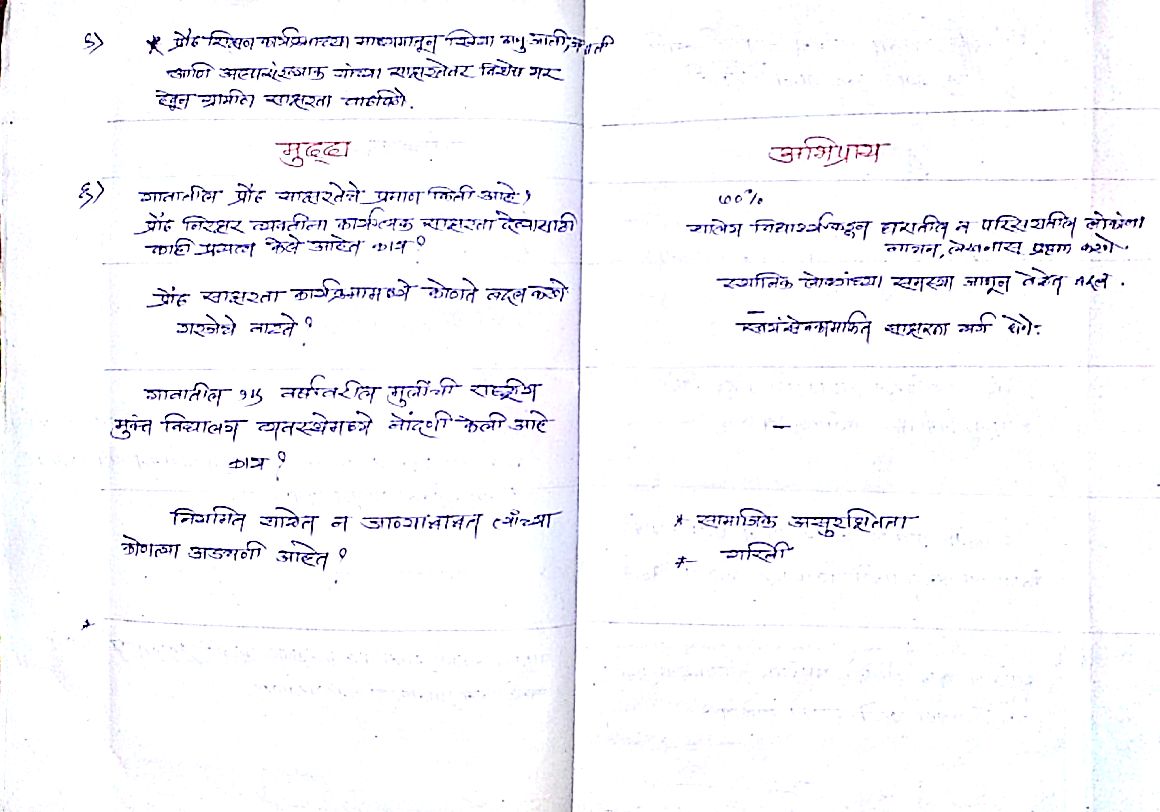 ६) * प्रौढ शिक्षण कार्यक्रमाच्या माध्यमातून स्त्रिया अनु जाती, जमाती
आणि अल्पसंख्याक यांच्या साक्षरतेवर विशेष भर
देवून ग्रामीण साक्षरता वाढविणे.
मुद्दा
अभिप्राय
६) गावातील प्रौढ साक्षरतेचे प्रमाण किती आहे?
प्रौढ निरक्षर व्यक्तींना कार्यात्मक साक्षरता देण्यासाठी
काही प्रयत्न केले आहेत काय?
७०%
विद्यार्थ्यांकडून घरातील व परिसरातील लोकांना
वाचन, लेखनास प्रवृत्त करणे.
प्रौढ साक्षरता कार्यक्रमामध्ये कोणते बदल करणे
गरजेचे वाटते?
स्थानिक लोकांच्या समस्या जाणून तेथेत बदल.
स्वयंसेवकामार्फत साक्षरता वर्ग घेणे.
गावातील १५ वर्षावरील मुलींची राष्ट्रीय
मुक्त विद्यालय व्यवस्थेमध्ये नोंदणी केली आहे
काय?
—
नियमित शाळेत न जाण्याबाबत त्यांच्या
कोणत्या अडचणी आहेत?
* सामाजिक असुरक्षितता
* गरिबी
*